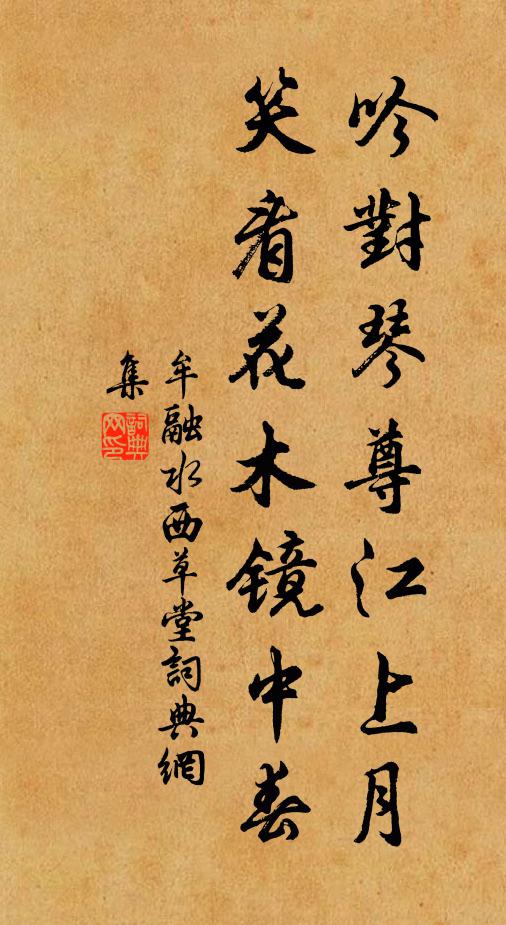 吟對琴尊江上月
笑看花木镜中春
牟融水西草堂詞典網
集
詞典网印